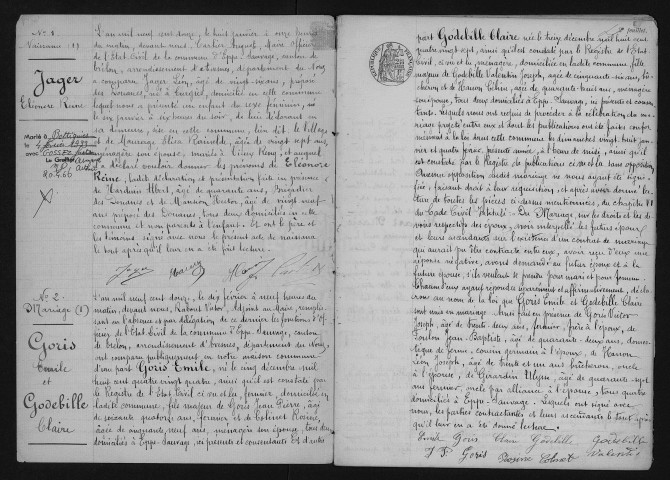 No 1
Naissance
Jager
Eléonore Reine
Marié à Bettignies
le 4 1933
avec GOSSET
Le Greffier
L'an mil neuf cent douze, le huit janvier à onze heures
du matin, devant nous, Cartier August, Maire Officier
de l'Etat Civil de la commune d'Eppe-Sauvage, canton
de trélon, arrondissement d'avesnes, département du Nord
a comparu Jager Léon, âgé de vingt six ans, préposé
des Douanes, né à domicilié en cette commune
lequel nous a présenté un enfant du sexe féminin, né
le janvier à six heures du soir, de lui déclarant en
sa demeure, sise en cette commune, lieu dit: le Village
et de Elisa âgée de vingt sept ans,
son épouse, née à et auquel
il a déclaré vouloir donner les prénoms de Eléonore
Reine, ladite déclaration et présentation faite en présence
de Harduin Albert, âgé de quarante ans, Brigadier
des Douanes et de Manson Hector, âgé de vingt neuf
ans préposé des Douanes, tous deux domiciliés en cette
commune et non parents à l'enfant. Et ont le père et
les témoins signé avec nous le présent acte de naissance
le tout après qu'il leur en a été fait lecture.
Jager
No 2
Mariage (1)
Goris
Emile
et
Godebille
Claire
L'an mil neuf cent douze, le dix février à neuf heures du
matin, devant nous, Rabout Victor, Adjoint au Maire, remplis-
sant en l'absence et par délégation, de ce dernier les fonctions d'Of-
ficier de l'Etat Civil de la commune d'Eppe-Sauvage, canton
de trélon, arrondissement d'avesnes, département du Nord,
ont comparu publiquement en notre maison commune
d'une part Goris Emile, né le cinq décembre mil
huit cent quatre vingt quatre, ainsi qu'il est constaté par
le Registre de l'Etat Civil, fermier, domicilié en
ladite commune, fils majeur de Goris Jean Pierre, âgé
de soixante quatre ans, fermier et de Colinet Rosine,
âgée de cinquante neuf ans, ménagère son épouse, tous deux
domiciliés à Eppe-Sauvage, ici présents et consentants Et d'autre
part Godebille Claire née le treize décembre mil huit cent
quatre vingt sept, ainsi qu'il est constaté par le Registre de l'Etat
Civil, et ménagère, domiciliée en ladite commune, fille
majeure de Godebille Valentin Joseph, âgé de cinquante six ans, bû-
cheron et de Hanon Céline, âgée de quarante huit ans, ménagère
son épouse, tous deux domiciliés à Eppe-Sauvage, ici présents et consen-
tants, lesquels nous ont requis de procéder à la célébration du
mariage projeté entre eux et dont les publications ont été faites confor-
mément à la loi dans cette commune les dimanches vingt huit jan-
vier et quatre février, présente année, à heure de midi, ainsi qu'il
est constaté par le Registre de publications sans opposition
Aucune opposition audit mariage ne nous ayant été signi-
fiée, faisant droit à leur réquisition, et après avoir donné lecture
de toutes les pièces ci-dessus mentionnées, du chapitre VI
du Code Civil intitulé: Du Mariage, sur les droits et les de-
voirs respectifs des époux, avoir interpellé les futurs époux
et leurs ascendants sur l'existence d'un contrat de mariage
qui aurait pu être contracté entre eux, avoir reçu d'eux une
réponse négative, avons demandé au futur époux et à la
future épouse, s'ils veulent se prendre pour mari et pour femme
chacun d'eux ayant répondu séparément et affirmativement, décla-
rons au nom de la loi que Goris Emile et Godebille Claire
sont unis en mariage. Ainsi fait en présence de Goris Victor
Joseph, âgé de trente deux ans, fermier, frère à l'époux, de
Jean-Baptiste, âgé de quarante deux ans,
de ferme, cousin germain à l'époux, de Hanon
Léon Joseph, âgé de trente et un ans bûcheron, oncle
à l'épouse, de Gérardin Ulysse, âgé de quarante sept
ans fermier, oncle par alliance à l'épouse, tous quatre
domiciliés à Eppe-Sauvage, lesquels ont signé avec
nous, les parties contractantes et leurs ascendants le tout après
qu'il leur en a été donné lecture.
Emile Goris Claire Godebille Godebille
J P Goris Rosine Colinet Valentin